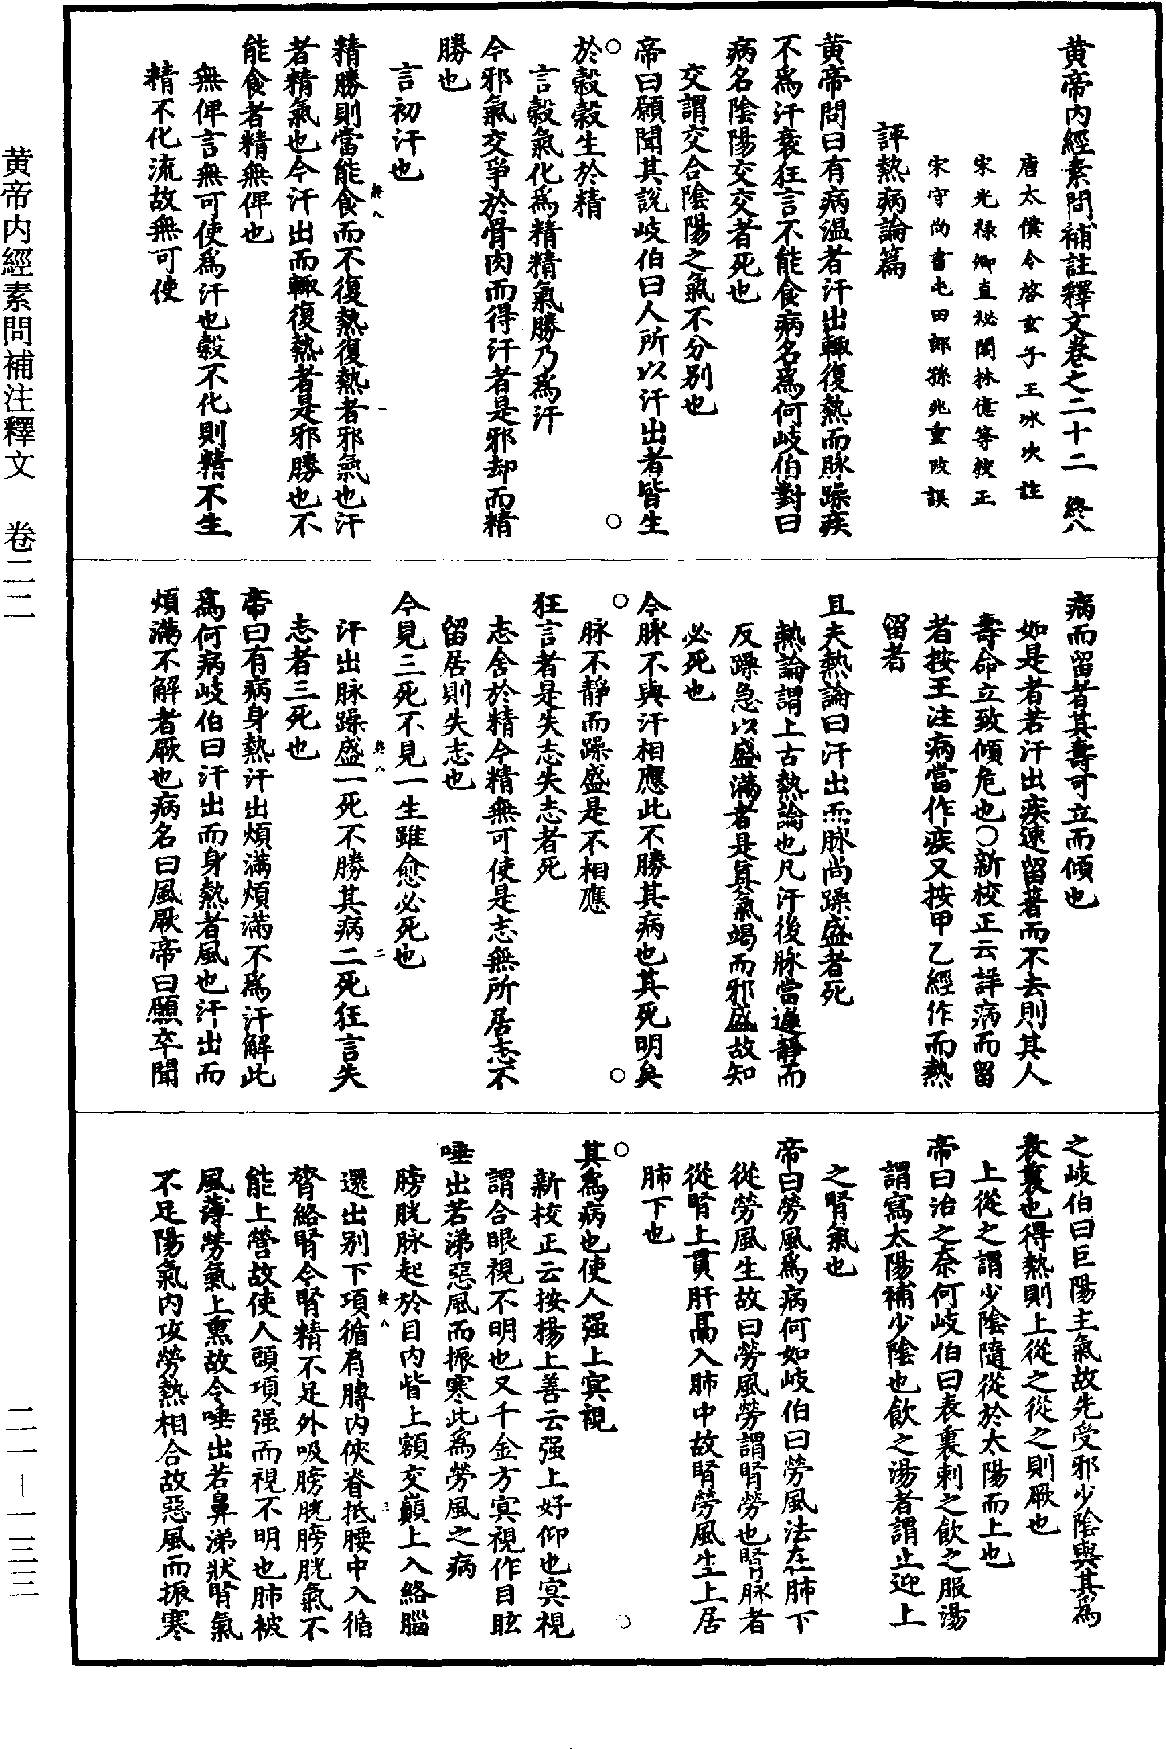 黃帝內經素問補註釋文卷之二十二 終八
唐太僕令啓玄子王冰次註
宋光祿卿直祕閣林億等校正
宋守尚書屯田郎孫兆重改誤
評熱病論篇
黃帝問曰有病溫者汗出輒復熱而脉躁疾
不爲汗衰狂言不能食病名爲何岐伯對曰
病名陰陽交交者死也
交謂交合陰陽之氣不分別也
帝曰願聞其說岐伯曰人所以汗出者皆生
於穀穀生於精
言穀氣化爲精精氣勝乃爲汗
今邪氣交爭於骨肉而得汗者是邪却而精
勝也
言初汗也
精勝則當能食而不復熱復熱者邪氣也汗
者精氣也今汗出而輒復熱者是邪勝也不
能食者精無俾也
無俾言無可使爲汗也穀不化則精不生
精不化流故無可使
病而留者其壽可立而傾也
如是者若汗出疾速留著而不去則其人
壽命立致傾危也○新校正云詳病而留
者按王注病當作疾又按甲乙經作而熱
留者
且夫熱論曰汗出而脉尚躁盛者死
熱論謂上古熱論也凡汗後脉當遲靜而
反躁急以盛滿者是真氣竭而邪盛故知
必死也
今脉不與汗相應此不勝其病也其死明矣
脉不靜而躁盛是不相應
狂言者是失志失志者死
志舍於精今精無可使是志無所居志不
留居則失志也
今見三死不見一生雖愈必死也
汗出脉躁盛一死不勝其病二死狂言失
志者三死也
帝曰有病身熱汗出煩滿煩滿不爲汗解此
爲何病岐伯曰汗出而身熱者風也汗出而
煩滿不解者厥也病名曰風厥帝曰願卒聞
之岐伯曰巨陽主氣故先受邪少陰與其爲
表裏也得熱則上從之從之則厥也
上從之謂少陰隨從於太陽而上也
帝曰治之奈何岐伯曰表裏刺之飲之服湯
謂寫太陽補少陰也飲之湯者謂止逆上
之腎氣也
帝曰勞風爲病何如岐伯曰勞風法在肺下
從勞風生故曰勞風勞謂腎勞也腎脉者
從腎上貫肝鬲入肺中故腎勞風生上居
肺下也
其爲病也使人强上冥視
新校正云按楊上善云强上好仰也冥視
謂合眼視不明也又千金方冥視作目眩
唾出若涕惡風而振寒此爲勞風之病
膀胱脉起於目內眥上額交巔上入絡腦
還出別下項循肩膊內俠脊抵腰中入循
膂絡腎今腎精不足外吸膀胱膀胱氣不
能上營故使人頭項强而視不明也肺被
風薄勞氣上熏故令唾出若鼻涕狀腎氣
不足陽氣內攻勞熱相合故惡風而振寒
黃帝內經素問補注釋文 卷二二
二一－一三三
終八 一
終八 二
終八 三